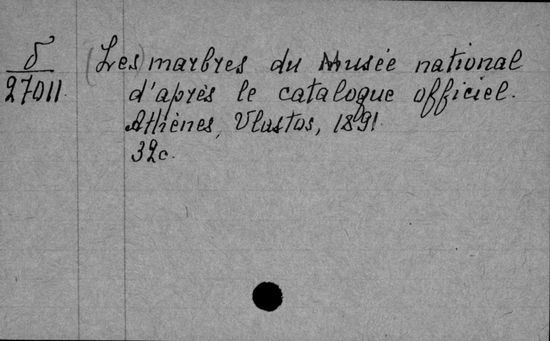 δ
27011
(Les) marbres du Musée national
d'après le catalogue officiel.
Athènes, Vlastos, 1891.
32c.